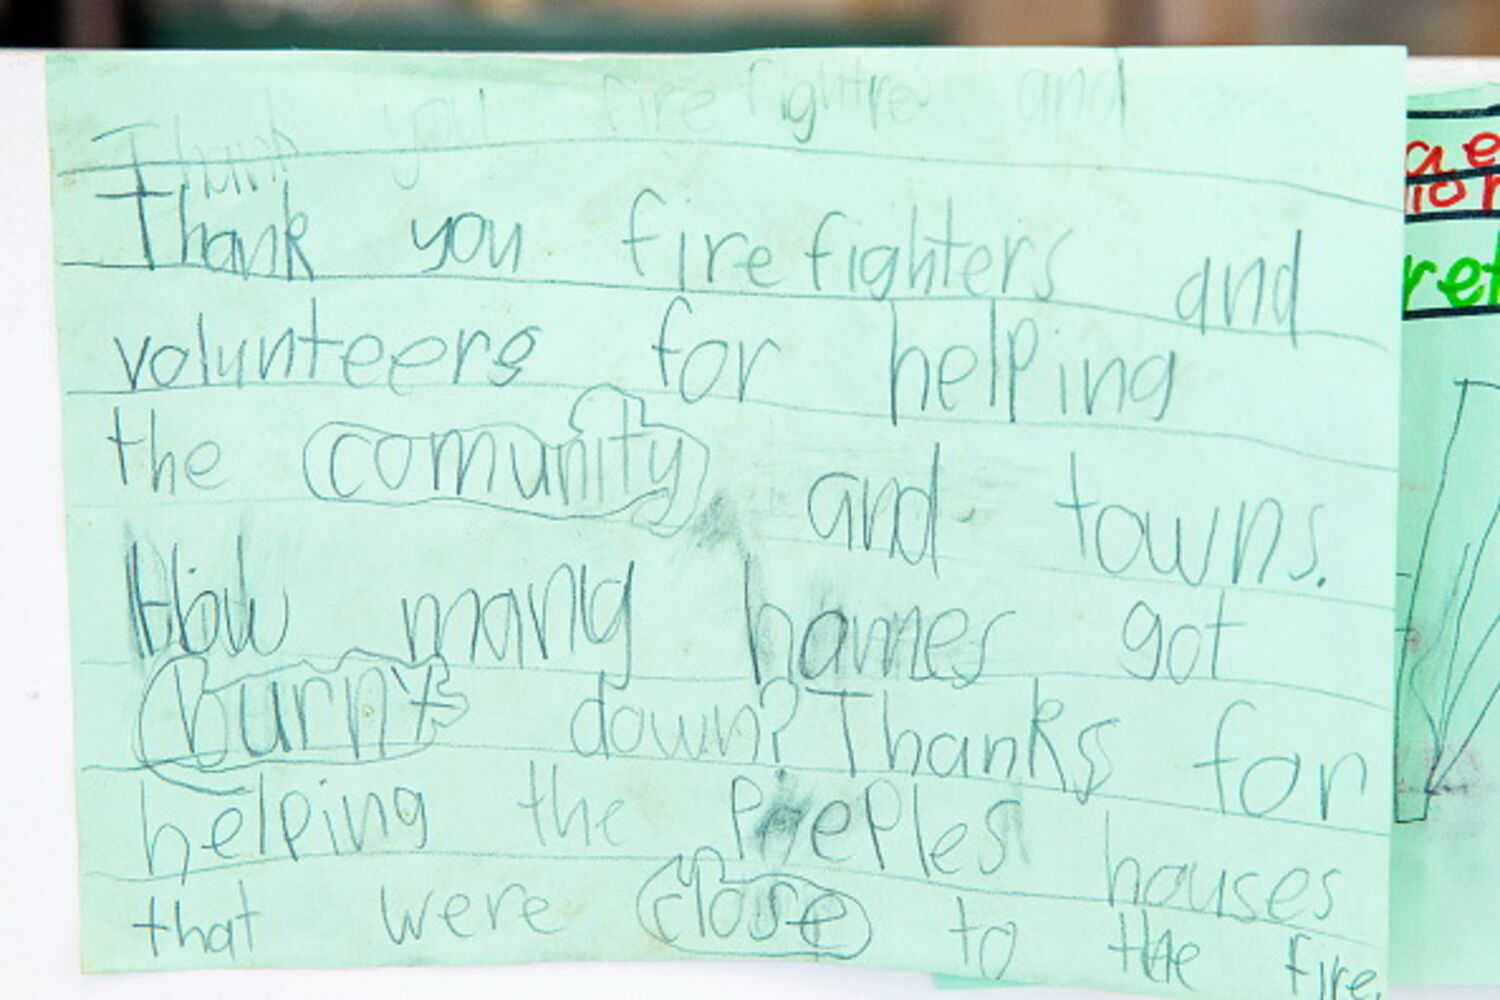 Thank you fire fightre and
Thank you fire fighters and
volunteers for helping
the comunity and towns.
How many homes got
burnt down? Thanks for
helping the Peeples houses
that were close to the fire.
ret